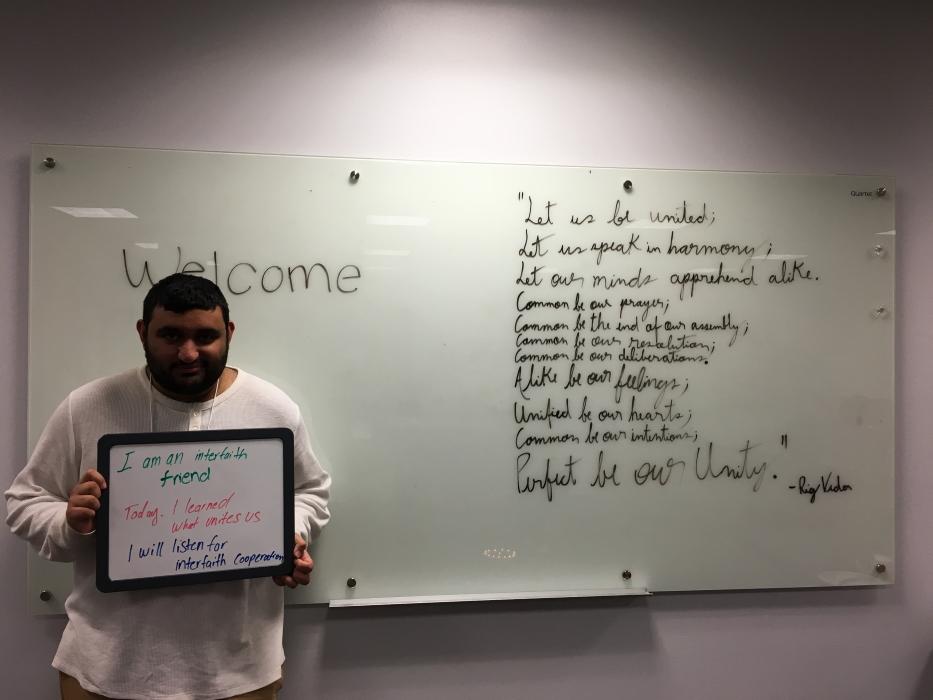 Welcome
Quartet
"Let us be united;
Let us speak in harmony;
Let our minds apprehend alike.
Common be our prayer;
Common be the end of our assembly;
Common be our resolution;
Common be our deliberations.
Alike be our feelings;
Unified be our hearts;
Common be our intentions;
Perfect be our Unity."
-Rig Veda
I am an interfaith
friend
Today, I learned
what unites us
I will listen for
interfaith cooperation